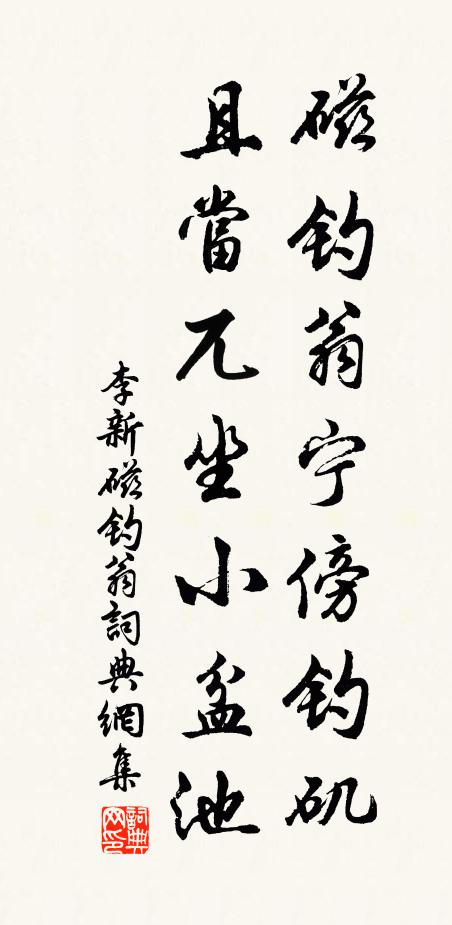 磁钓翁宁傍钓矶
且當兀坐小盆池
李新磁钓翁詞典網集
詞典网印